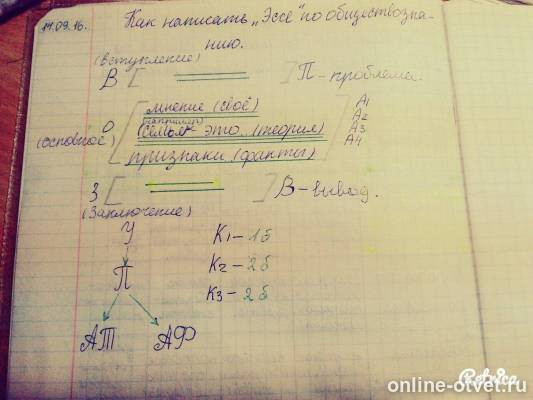 14.09.16.
Как написать „Эссе“ по обществозна-
нию.
(вступление)
В [ ] П - проблема.
мнение (своё)
(например)
О (семья - это.. (теория)
(основное)
признаки (факты)
А1
А2
А3
А4
З [ ] В - вывод.
(Заключение)
У
П
АТ АФ
К1 - 1б
К2 - 2б
К3 - 2б
Retrica
online-otvet.ru